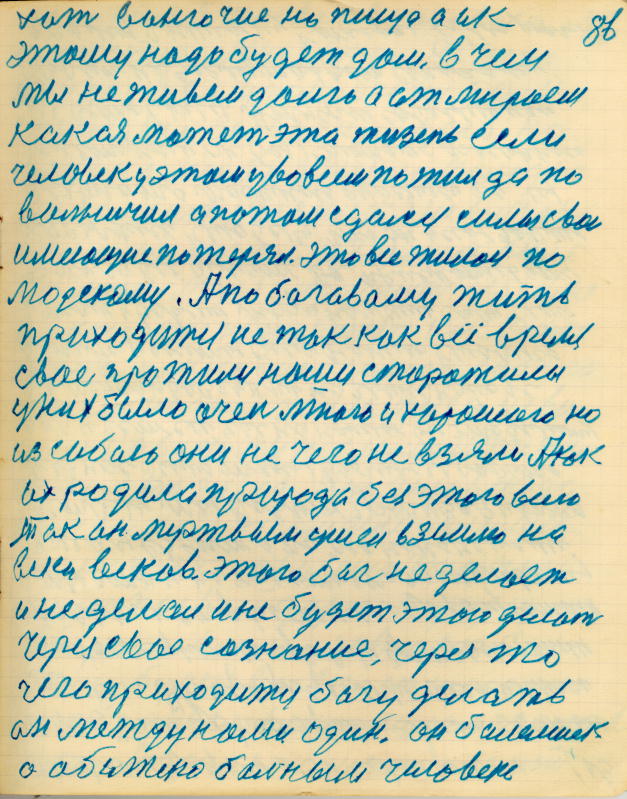 86
хот вонгочие но пища а ик
этому надо будет дом. в чем
мы не живем долго а отмираем
какая может эта жизень если
человек у этом уво всем пожил да по
вольничил а потом сдался силы свои
имеющие потерял. это все жилось по
людскому. А по богавому жить
приходится не так как всё время
свое прожили наши старожилы
у них было очен много и хорошого но
из собою они не чего не взяли А как
их родила природа без этого всего
так он мертвым ушел в землю на
веки веков. этого бог не делает
и не делал и не будет этого делат
через свое сознание, через то
чего приходится богу делать
он между нами один. он болельшик
о обижено больным человеке